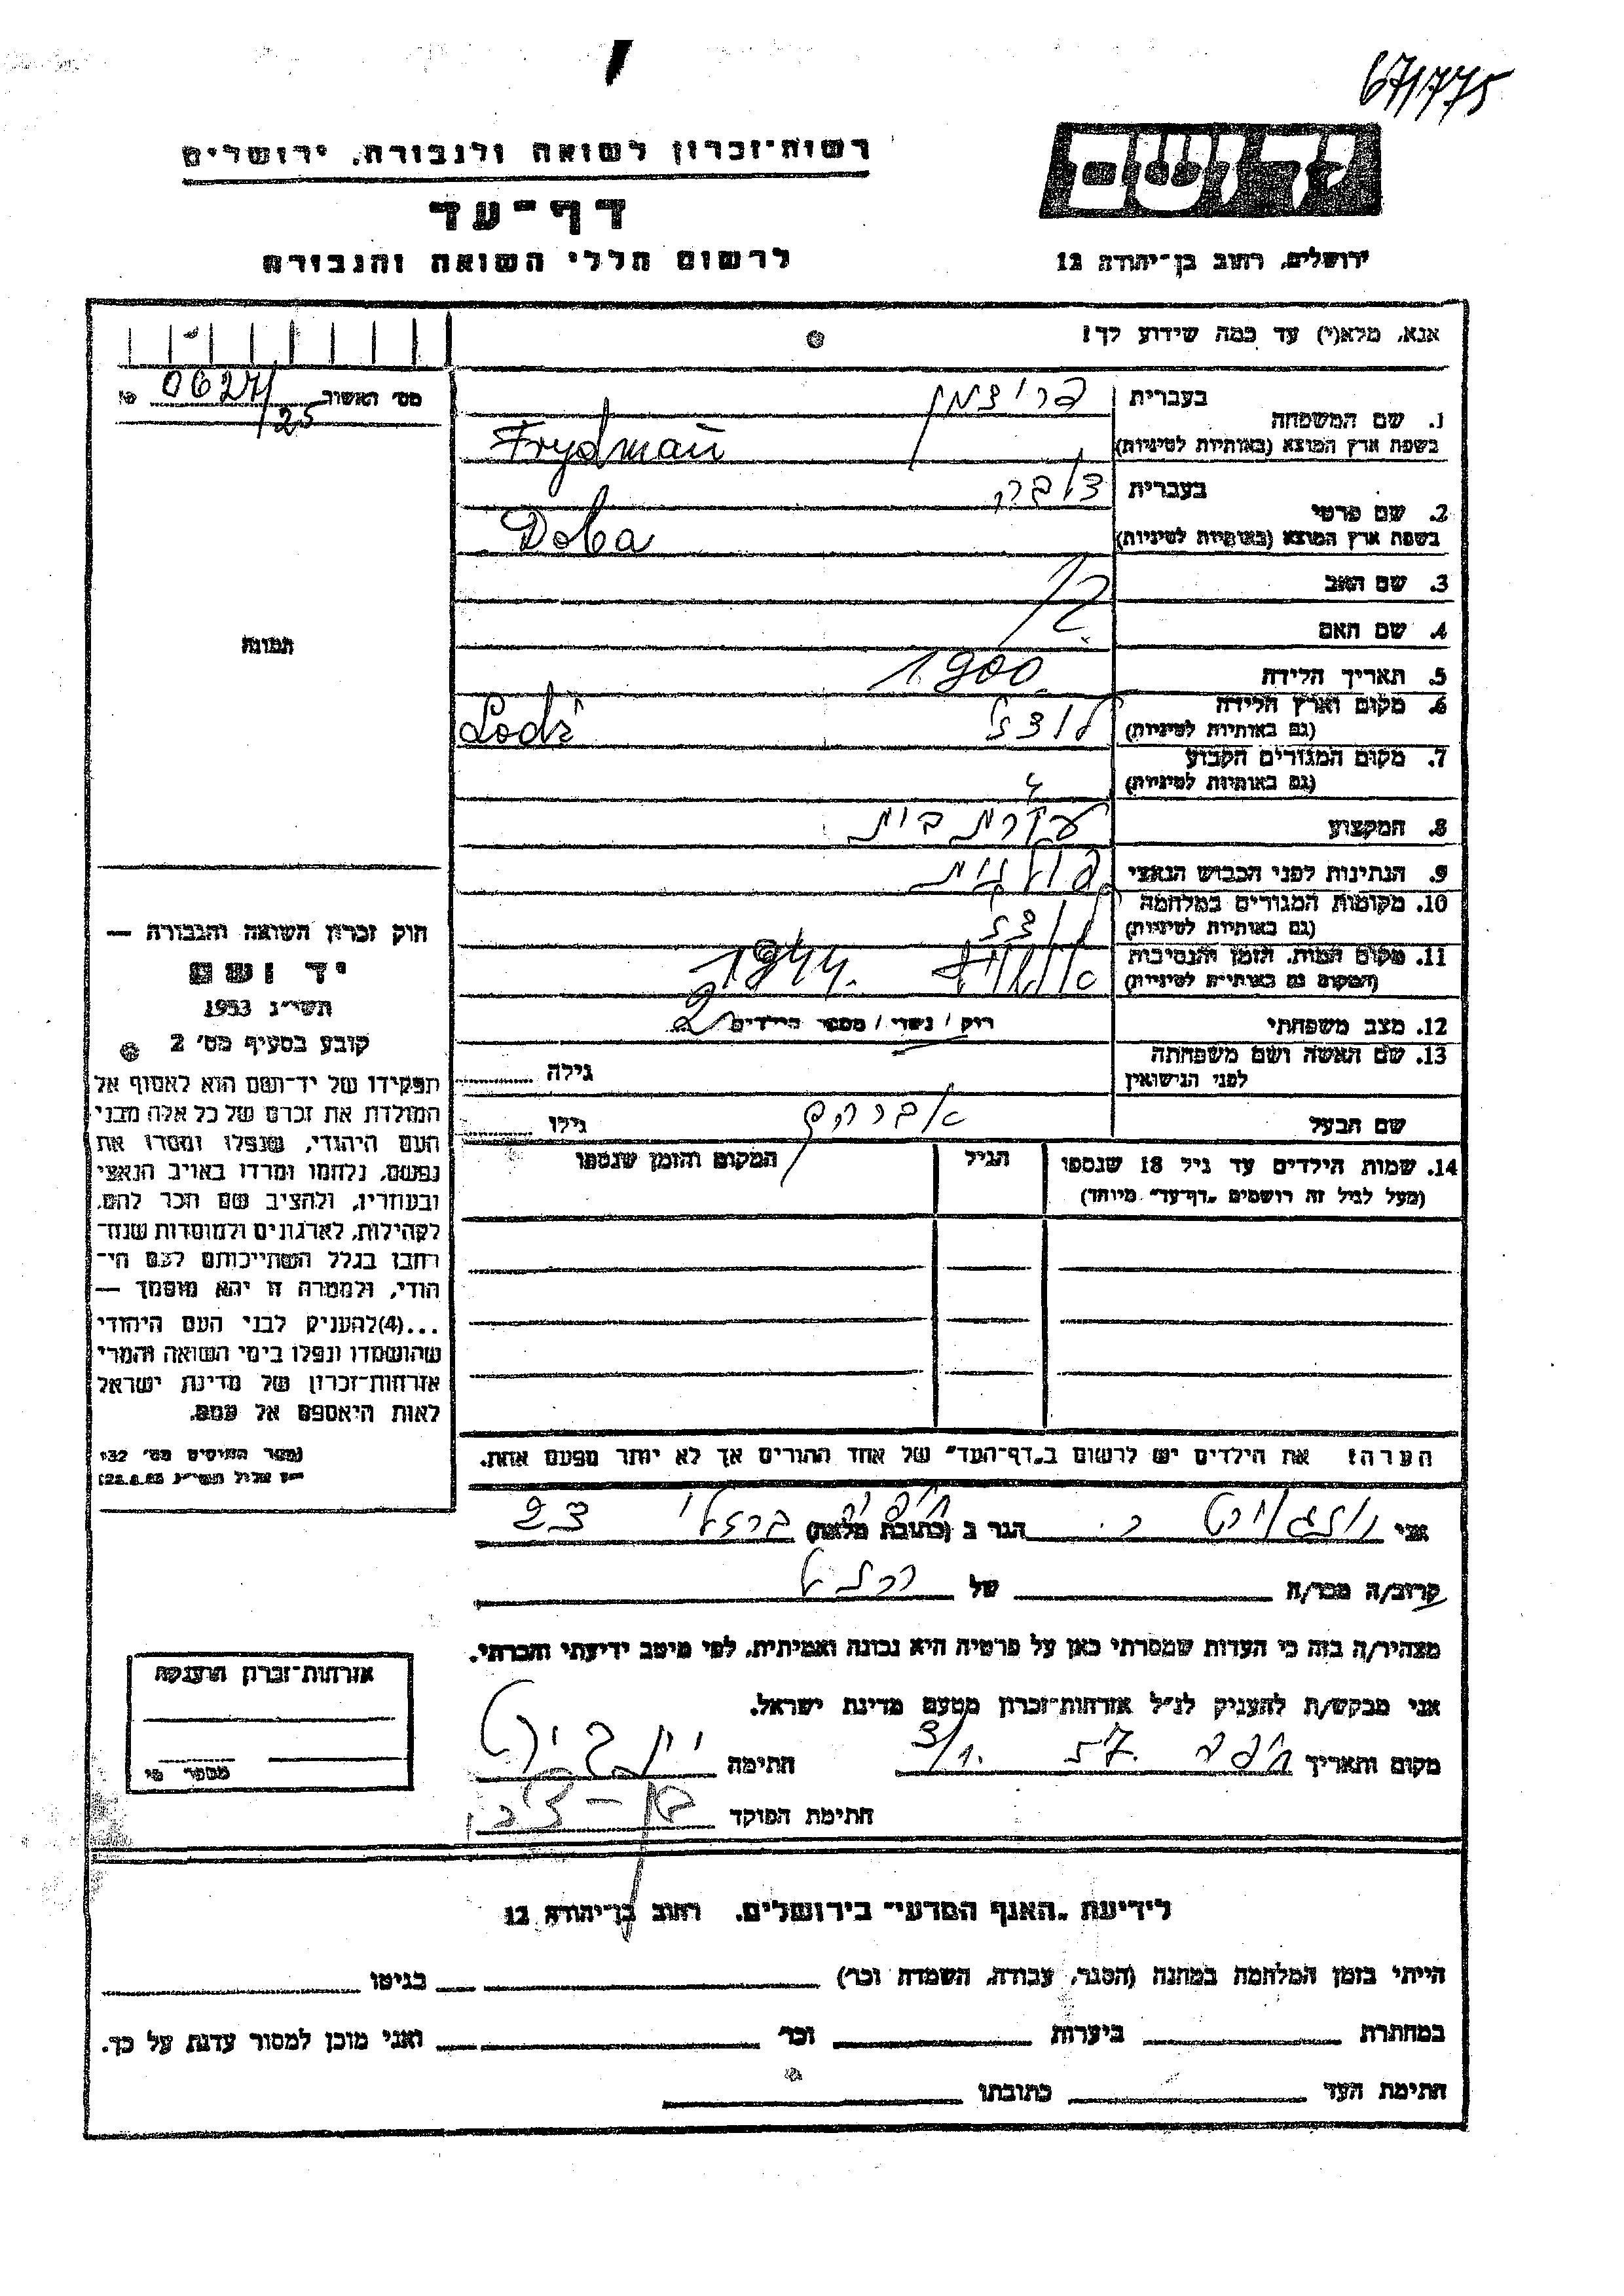 671775
יד ושם
רשות־זכרון לשואה ולגבורה, ירושלים
דף־עד
לרשום חללי השואה והגבורה
ירושלים, רחוב בן־יהודה 12
אנא, מלא(י) עד כמה שידוע לך!
מס׳ האשוב 0627/25
1. שם המשפחה
בעברית פרידמן
בשפת ארץ המוצא (באותיות לטיניות) Frydman
2. שם פרטי
בעברית דובה
בשפת ארץ המוצא (באותיות לטיניות) Doba
3. שם האב
4. שם האם
5. תאריך הלידה 1900
6. מקום וארץ הלידה
(גם באותיות לטיניות) לודז Lodz
7. מקום המגורים הקבוע
(גם באותיות לטיניות)
8. המקצוע עקרת בית
9. הנתינות לפני הכבוש הנאצי פולנית
10. מקומות המגורים במלחמה
(גם באותיות לטיניות) לודז
11. מקום המות, הזמן והנסיבות
(המקום גם באותיות לטיניות) 1944.
12. מצב משפחתי רווק / נשוי / מספר הילדים 2
13. שם האשה ושם משפחתה
לפני הנישואין
גילה
שם הבעל אברהם גילו
14. שמות הילדים עד גיל 18 שנספו
(מעל לגיל זה רושמים „דף־עד״ מיוחד)
הגיל
המקום והזמן שנספו
הערה! את הילדים יש לרשום ב„דף־העד״ של אחד ההורים אך לא יותר מפעם אחת.
תמונה
חוק זכרון השואה והגבורה —
יד ושם
תשי״ג 1953
קובע בסעיף מס׳ 2
תפקידו של יד־ושם הוא לאסוף אל
המולדת את זכרם של כל אלה מבני
העם היהודי, שנפלו ומסרו את
נפשם, נלחמו ומרדו באויב הנאצי
ובעוזריו, ולהציב שם וזכר להם,
לקהילות, לארגונים ולמוסדות שנח־
רבו בגלל השתייכותם לעם הי־
הודי, ולמטרה זו יהא מוסמך —
...(4)להעניק לבני העם היהודי
שהושמדו ונפלו בימי השואה והמרי
אזרחות־זכרון של מדינת ישראל
לאות היאספם אל עמם.
אני הגר ב (כתובת מלאה) חיפה ברזלי 23
קרוב/ה מכר/ה של
מצהיר/ה בזה כי העדות שמסרתי כאן על פרטיה היא נכונה ואמיתית, לפי מיטב ידיעתי והכרתי.
אני מבקש/ת להעניק לנ״ל אזרחות־זכרון מטעם מדינת ישראל.
מקום ותאריך חיפה 57. 3/1. חתימה
חתימת הפוקד
אזרחות־זכרון הוענקה
מספר
לידיעת „האגף המדעי״ בירושלים, רחוב בן־יהודה 12
הייתי בזמן המלחמה במחנה (הסגר, עבודה, השמדה וכו׳) בגיטו
במחתרת ביערות וכו׳ ואני מוכן למסור עדות על כך.
חתימת העד כתובתו